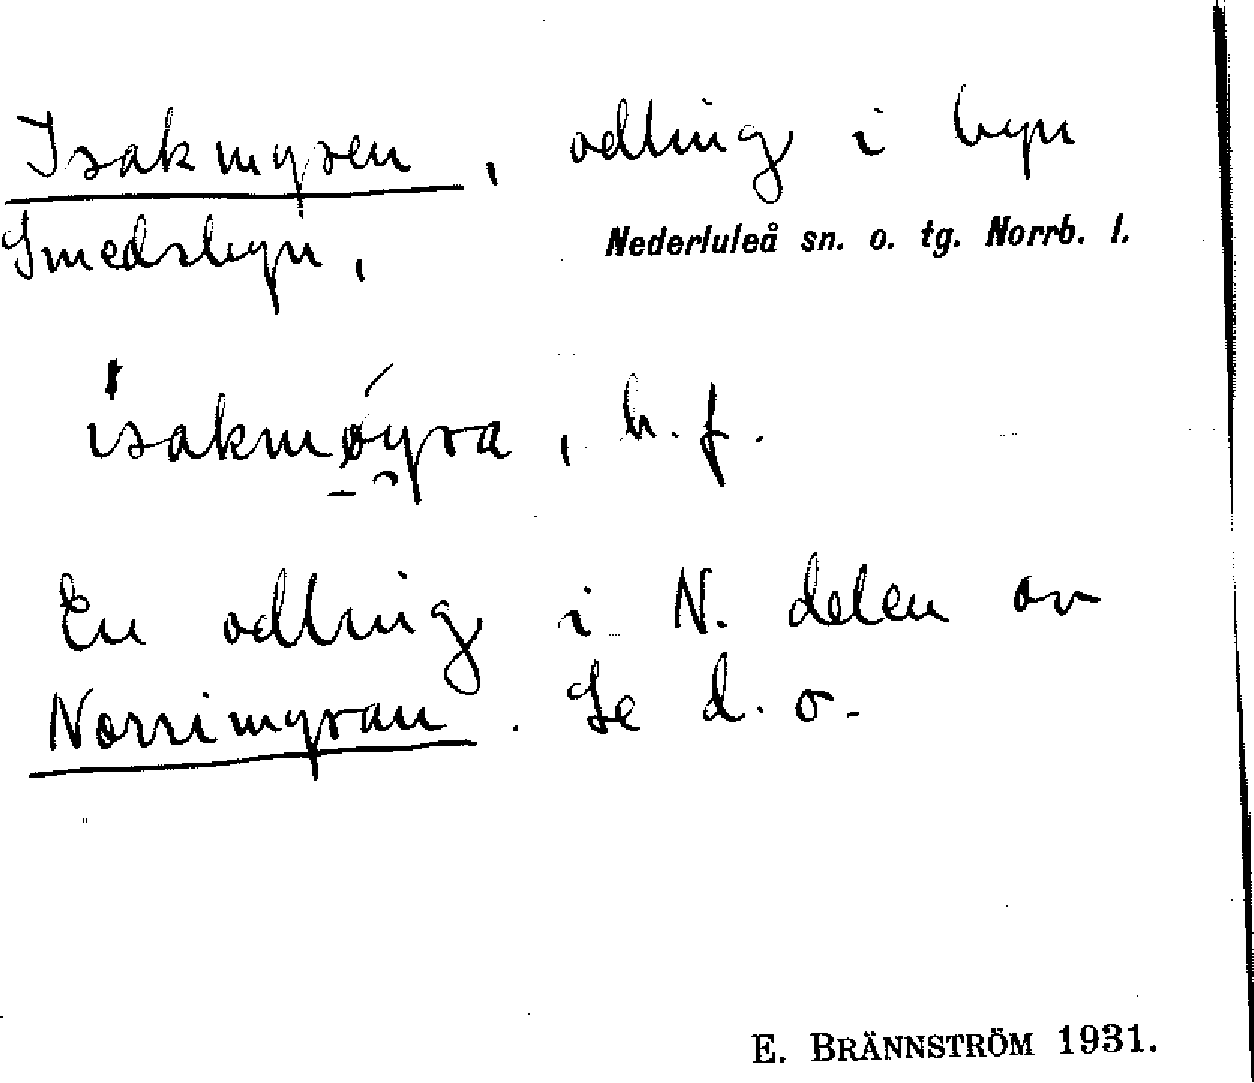 Isakmyren, odling i byn
Smedsbyn, Nederluleå sn. o. tg. Norrb. l.
ísakmøýra, b. f.
En odling i N. delen av
Norrimyran. Se d. o.
E. BRÄNNSTRÖM 1931.